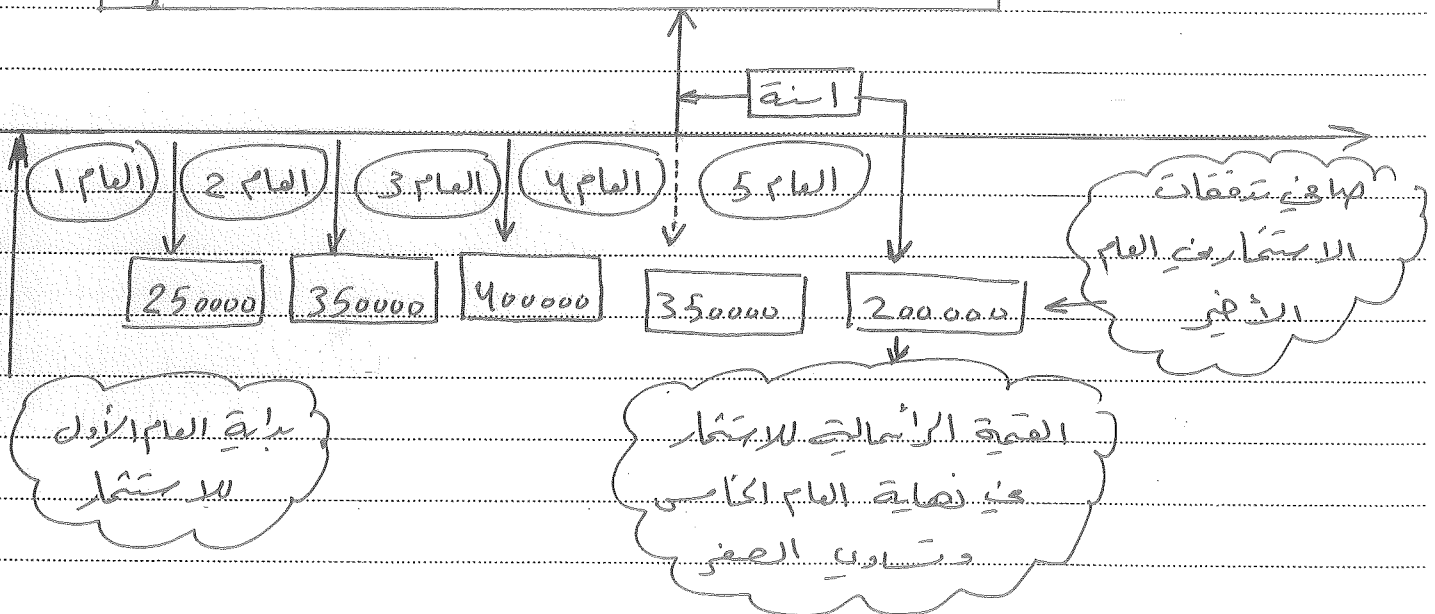 1 سنة
العام 1
العام 2
العام 3
العام 4
العام 5
250000
350000
400000
350000
200000
صافي تدفقات
الاستثمار في العام
الأخير
بداية العام الأول
للاستثمار
القيمة الرأسمالية للاستثمار
في نهاية العام الخامس
وتساوي الصفر